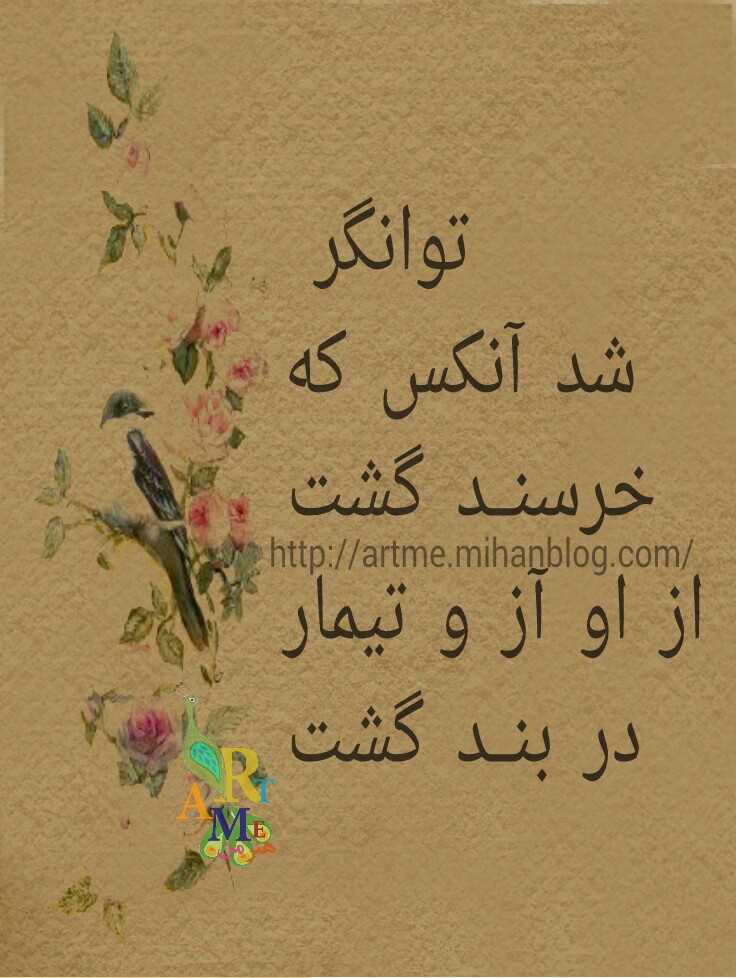 توانگر
شد آنکس که
خرسنـد گشت
http://artme.mihanblog.com/
از او آز و تیمار
در بنـد گشت
ART
ME
هنر من